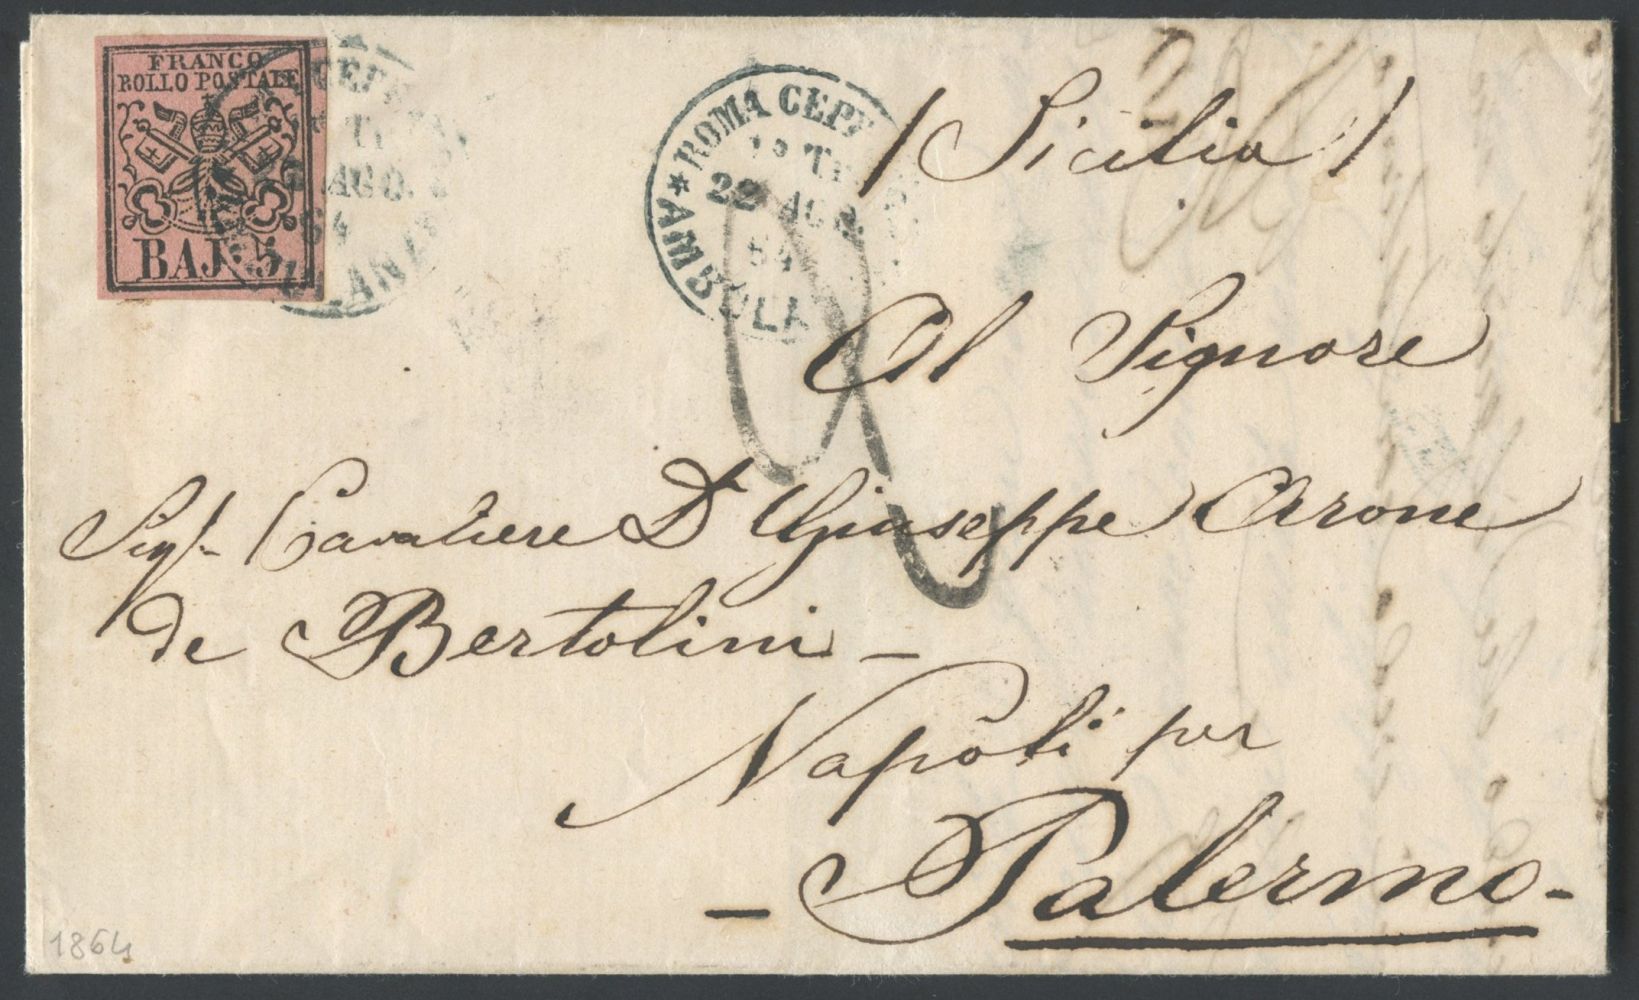 FRANCO
BOLLO POSTALE
BAJ: 5
AGO.
64
ROMA CEPR
1º TR
22 AGO
64
AMBULA
/ Sicilia /
Al Signore
Sigr. Cavaliere Dn Giuseppe Arone
de Bertolini -
Napoli per
- Palermo -
1864